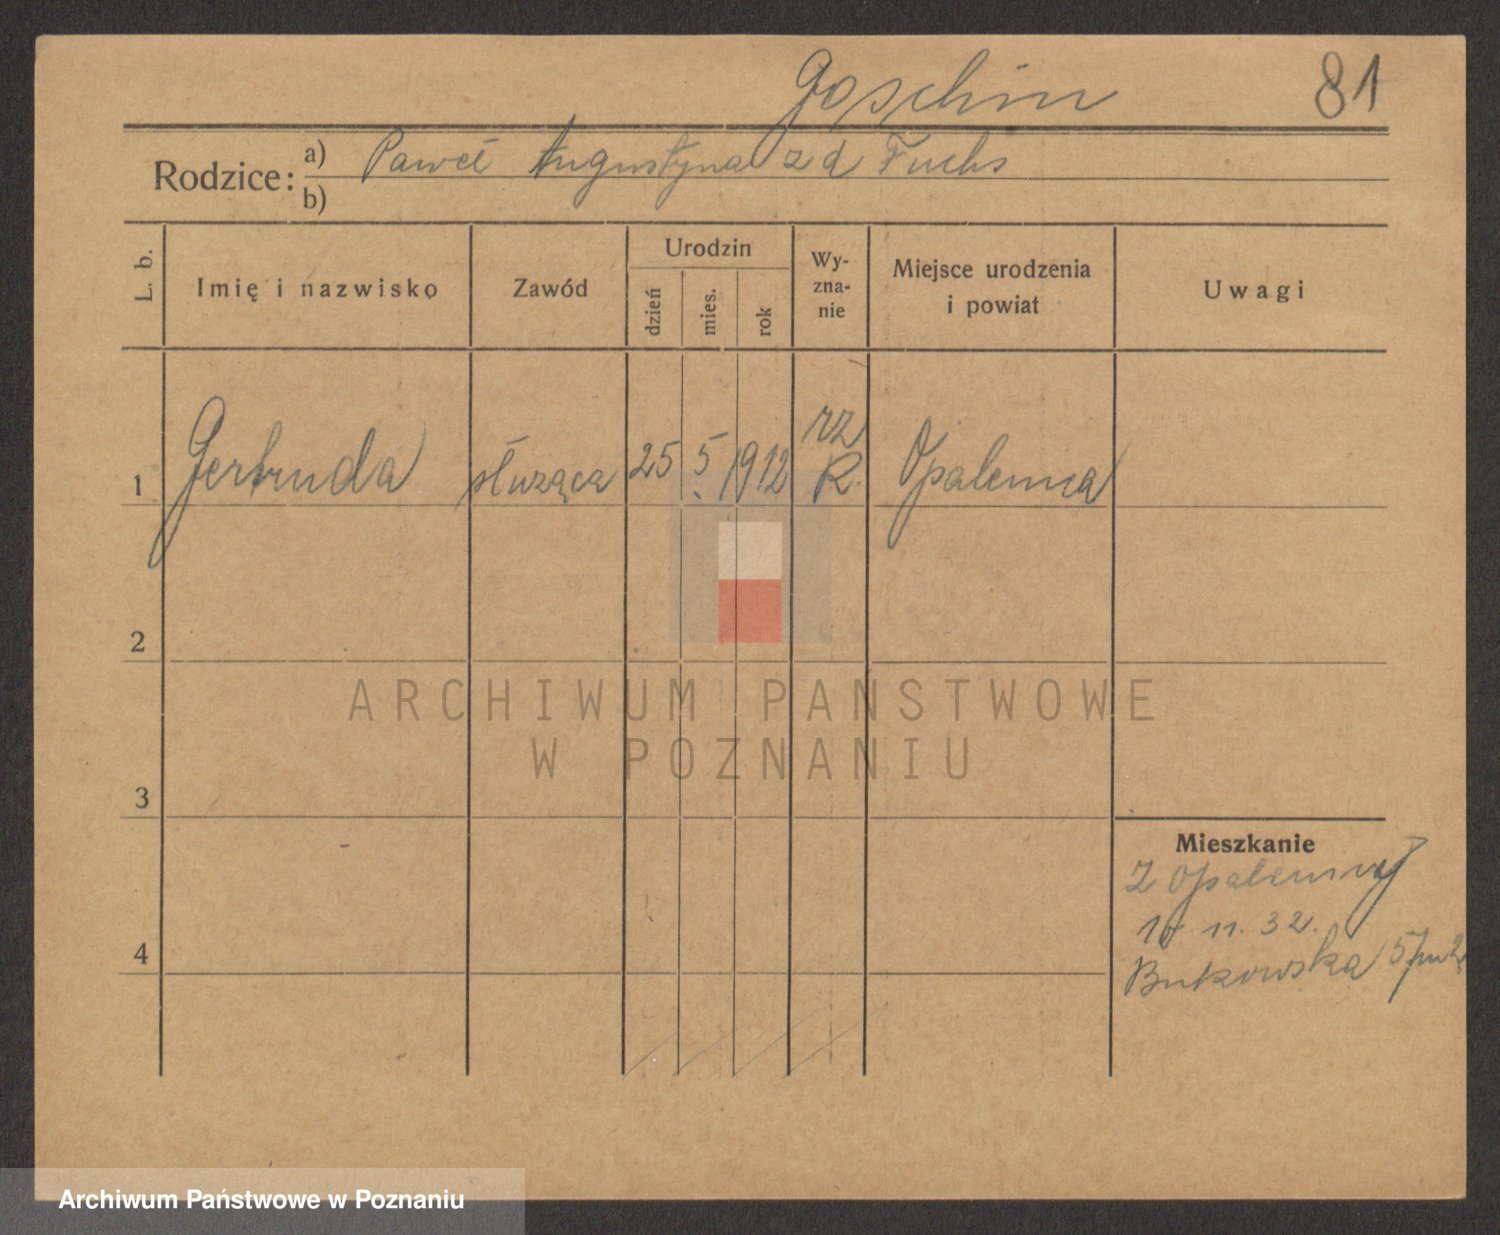 Goschin 81
Rodzice: a) Paweł Augustyna z d Fuchs
b)
L. b. Imię i nazwisko Zawód Urodzin dzień mies. rok Wy-zna-nie Miejsce urodzenia i powiat Uwagi
1 Gertruda służąca 25 5. 1912 rz R. Opalenica
2
ARCHIWUM PAŃSTWOWE
W POZNANIU
3
Mieszkanie
Z Opalenicy
11. 32.
4
Bukowska 57 m 2
Archiwum Państwowe w Poznaniu